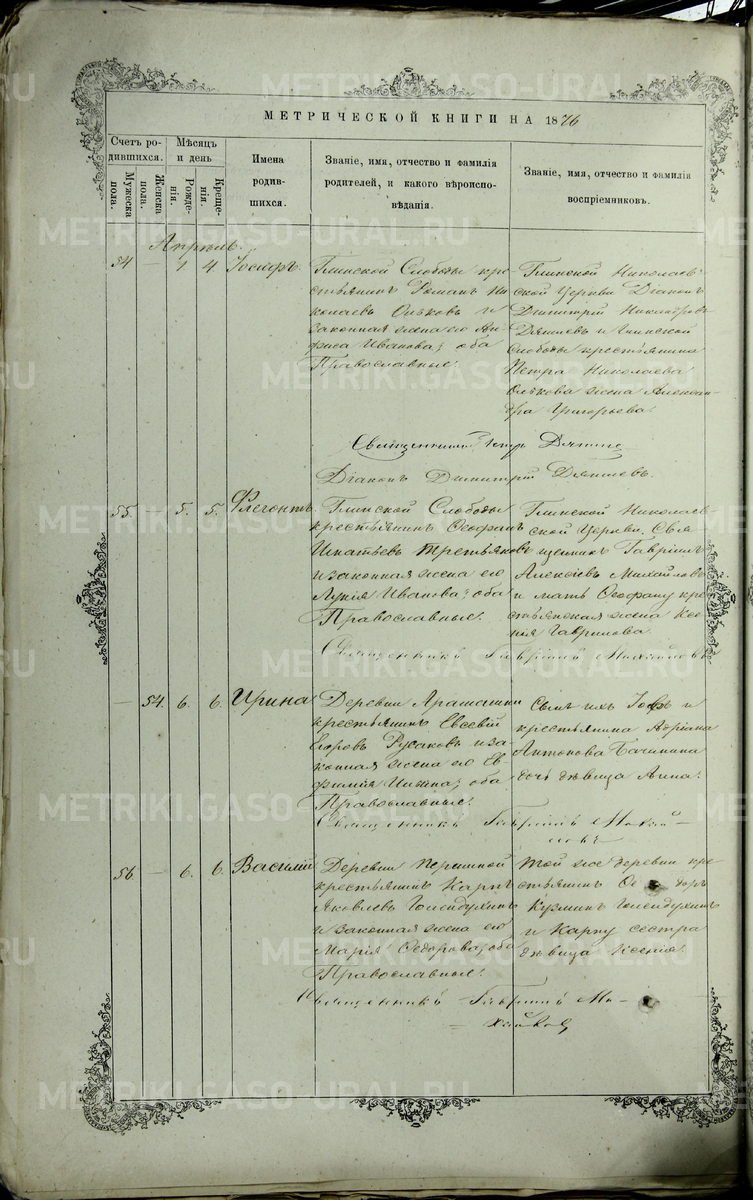 МЕТРИЧЕСКОЙ КНИГИ НА 1876
Счетъ ро-
дившихся.
Мужеска пола.
Женска пола.
Мѣсяцъ и день
Рожде-
нія.
Креще-
нія.
Имена
родив-
шихся.
Званіе, имя, отчество и фамилія
родителей, и какого вѣроиспо-
вѣданія.
Званіе, имя, отчество и фамилія
воспріемниковъ.
Апрѣль.
54 1 4 Іосифъ.
Глинской Слободы кре-
стьянинъ Романъ Ни-
колаевъ и
законная жена его Ан-
фиса Иванова; оба
Православные.
Глинской Николаев-
ской Церкви Діаконъ
Димитрій
и Глинской
Слободы крестьянина
Петра Николаева
жена Алексан-
дра Григорьева.
Священникъ Петр
Діаконъ Димитрій
55 — 5. 5. Флегонтъ.
Глинской Слободы
крестьянинъ Ѳеофанъ
Игнатьевъ Третьяковъ
и законная жена его
Лукія Иванова; оба
Православные.
Глинской Николаев-
ской Церкви Свя-
щенникъ Гавріилъ
Алексіевъ Михайловъ
и мать Ѳеофану кре-
стьянская жена Ксе-
нія Гаврилова.
Священникъ Гавріилъ Михайловъ
— 54. 6. 6. Ирина.
Деревни Арамашки
крестьянинъ Евсевій
Егоровъ Русаковъ и за-
конная жена его Ев-
фимія оба
Православные.
Сынъ ихъ Іовъ и
крестьянина Адріана
Антонова Бачинина
дочь дѣвица Анна.
Священникъ Гавріилъ Михай-
ловъ
56 — 6. 6. Василій
Деревни Першиной
крестьянинъ Карпъ
Яковлевъ Голендухинъ
и законная жена его
Марія Ѳедорова; оба
Православные.
Той же деревни кре-
стьянинъ Ѳеодоръ
Кузминъ Голендухинъ
и Карпу сестра
дѣвица Ксенія.
Священникъ Гавріилъ Ми-
хайловъ
METRIKI.GASO-URAL.RU